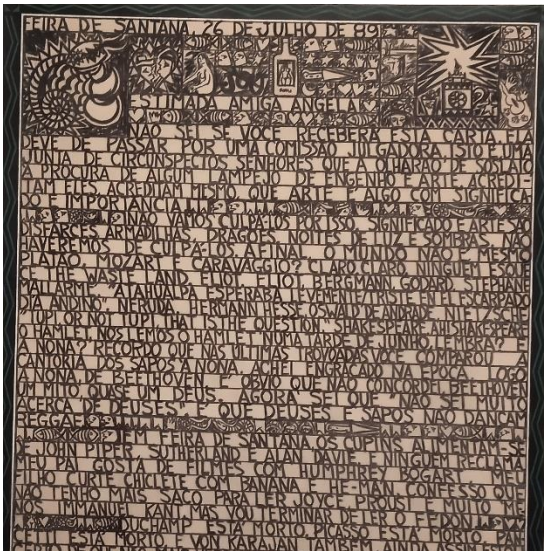 FEIRA DE SANTANA, 26 DE JULHO DE 89
ESTIMADA AMIGA ANGELIKA
NÃO SEI SE VOCÊ RECEBERÁ ESTA CARTA. ELA
DEVE DE PASSAR POR UMA COMISSÃO JULGADORA, ISTO É, UMA
JUNTA DE CIRCUNSPECTOS SENHORES QUE A OLHARÃO DE SOSLAIO
À PROCURA DE ALGUM LAMPEJO DE ENGENHO E ARTE. ACREDI-
TAM ELES, ACREDITAM MESMO, QUE ARTE É ALGO COM SIGNIFICA-
DO E IMPORTÂNCIA
NÃO VAMOS CULPÁ-LOS POR ISSO. SIGNIFICADO E ARTE SÃO
DISFARCES, ARMADILHAS, DRAGÕES, NOITES DE LUZ E SOMBRAS. NÃO
HAVEREMOS DE CULPÁ-LOS AFINAL. O MUNDO NÃO É MESMO
PLATÃO, MOZART E CARAVAGGIO? CLARO, CLARO, NINGUÉM ESQUE-
CE THE WASTE LAND, ELIOT, BERGMANN, GODARD, STEPHANE
MALLARMÉ, "ATAHUALPA ESPERABA LEVEMENTE/TRISTE EN EL ESCARPADO
DÍA ANDINO" NERUDA, HERMANN HESSE, OSWALD DE ANDRADE NIETZSCHE
TUPI OR NOT TUPI THAT IS THE QUESTION SHAKESPEARE AH! SHAKESPEARE
O HAMLET, NÓS LEMOS O HAMLET NUMA TARDE DE JUNHO, LEMBRA? E
A NONA? RECORDO QUE NAS ÚLTIMAS TROVOADAS VOCÊ COMPAROU A
CANTORIA DOS SAPOS À NONA. ACHEI ENGRAÇADO NA ÉPOCA. LOGO
A NONA DE BEETHOVEN. É ÓBVIO QUE NÃO CONCORDEI, BEETHOVEN
UM MITO, QUASE UM DEUS. AGORA SEI QUE NÃO SEI MUITO
ACERCA DE DEUSES E QUE DEUSES E SAPOS NÃO DANÇAM
REGGAE
EM FEIRA DE SANTANA OS CUPINS ALIMENTAM-SE
DE JOHN PIPER, SUTHERLAND E ALAN DAVIE E NINGUÉM RECLAMA
MEU PAI GOSTA DE FILMES COM HUMPHREY BOGART, MEU
FILHO CURTE CHICLETE COM BANANA E HE-MAN. CONFESSO QUE
NÃO TENHO MAIS SACO PARA LER JOYCE, PROUST E MUITO ME-
NOS IMMANUEL KANT, MAS VOU TERMINAR DE LER O FEDON
DUCHAMP ESTÁ MORTO, PICASSO ESTÁ MORTO,
ESTÁ MORTO, E VON KARAJAN TAMBÉM